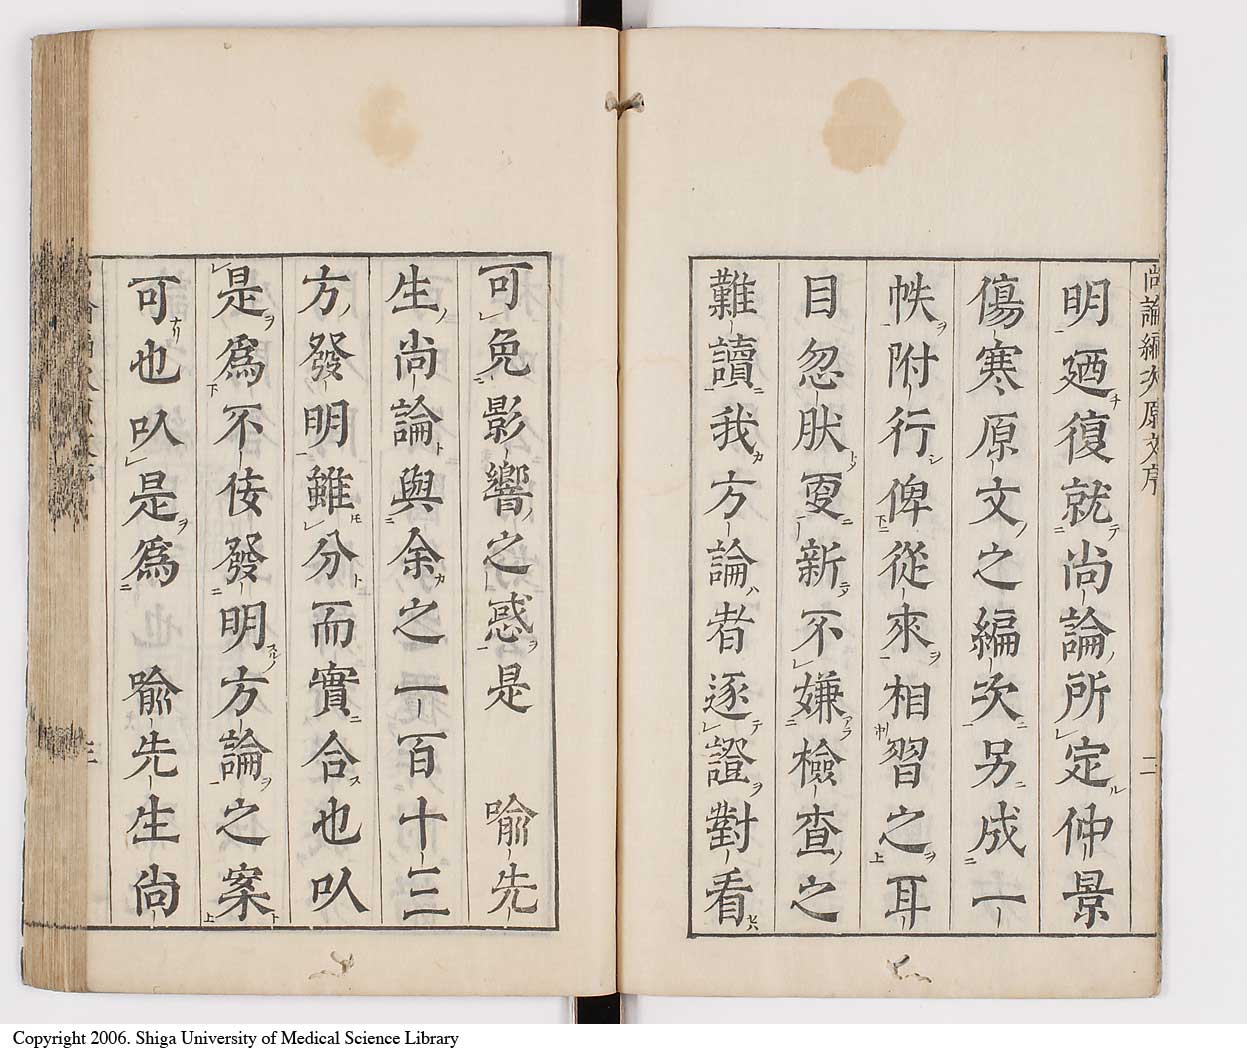 尚論編次原文序
二
明廼復就尚論所定仲景
傷寒原文之編次另成一
帙附行俾從來相習之耳
目忽肰更新不嫌檢查之
難讀我方論者逐證對看
可免影響之惑是　喻先
生尚論與余之一百十三
方發明雖分而實合也㕥
是爲不佞發明方論之案
可也㕥是爲　喻先生尚
三
Copyright 2006. Shiga University of Medical Science Library